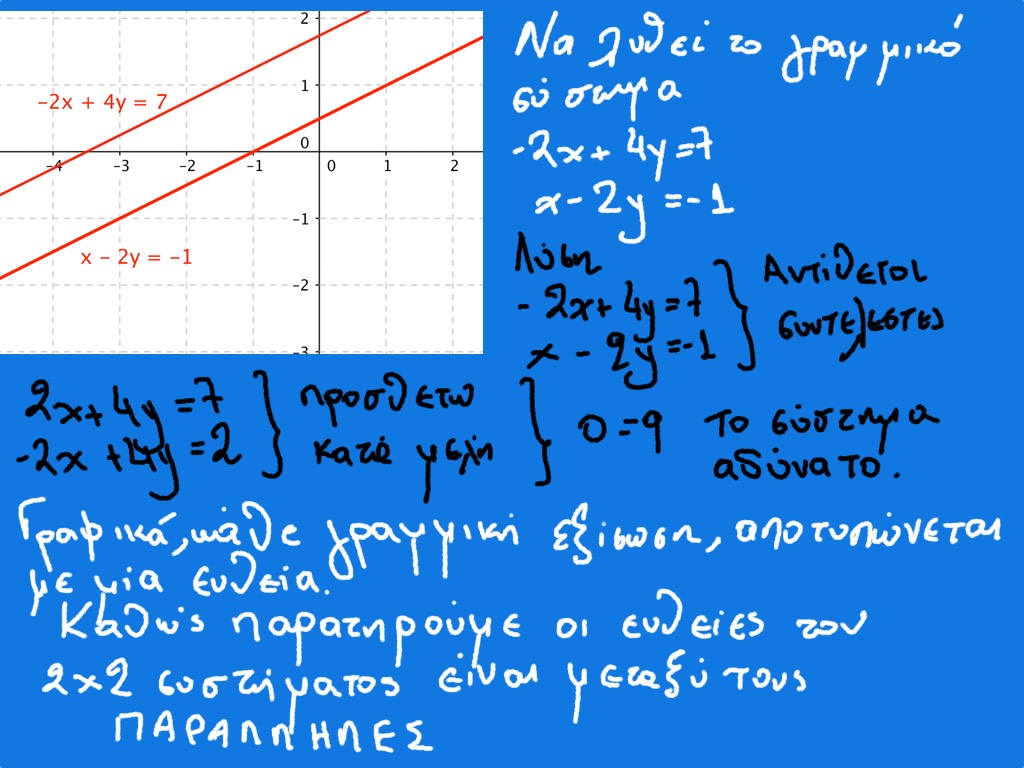 2
1
-2x + 4y = 7
0
-4 -3 -2 -1 0 1 2
-1
x - 2y = -1
-2
-3
Να λυθεί το γραμμικό
σύστημα
-2x + 4y = 7
x - 2y = -1
Λύση
-2x + 4y = 7
x - 2y = -1
Αντίθετοι
συντελεστές
2x + 4y = 7
-2x + 4y = 2
προσθετω
κατά μελη
0 = 9 το σύστημα
αδύνατο.
Γραφικά, κάθε γραμμική εξίσωση, αποτυπώνεται
με μία ευθεία.
Καθώς παρατηρούμε οι ευθείες του
2x2 συστήματος είναι μεταξύ τους
ΠΑΡΑΛΛΗΛΕΣ